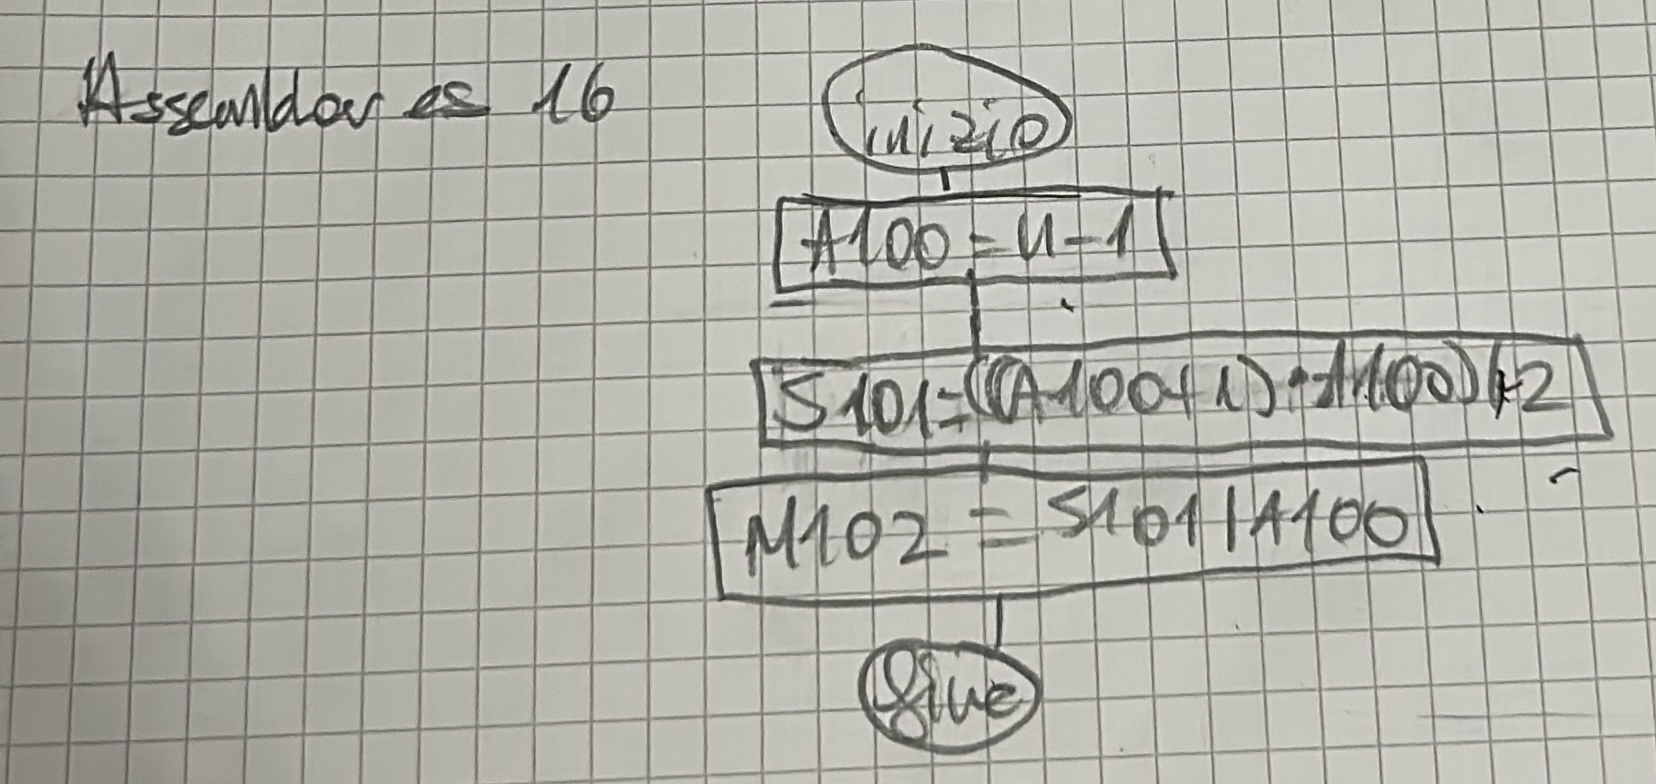 Assembler es 16
inizio
A100 = n-1
S101=((A100+1)·A100)/2
M102 = S101/A100
fine